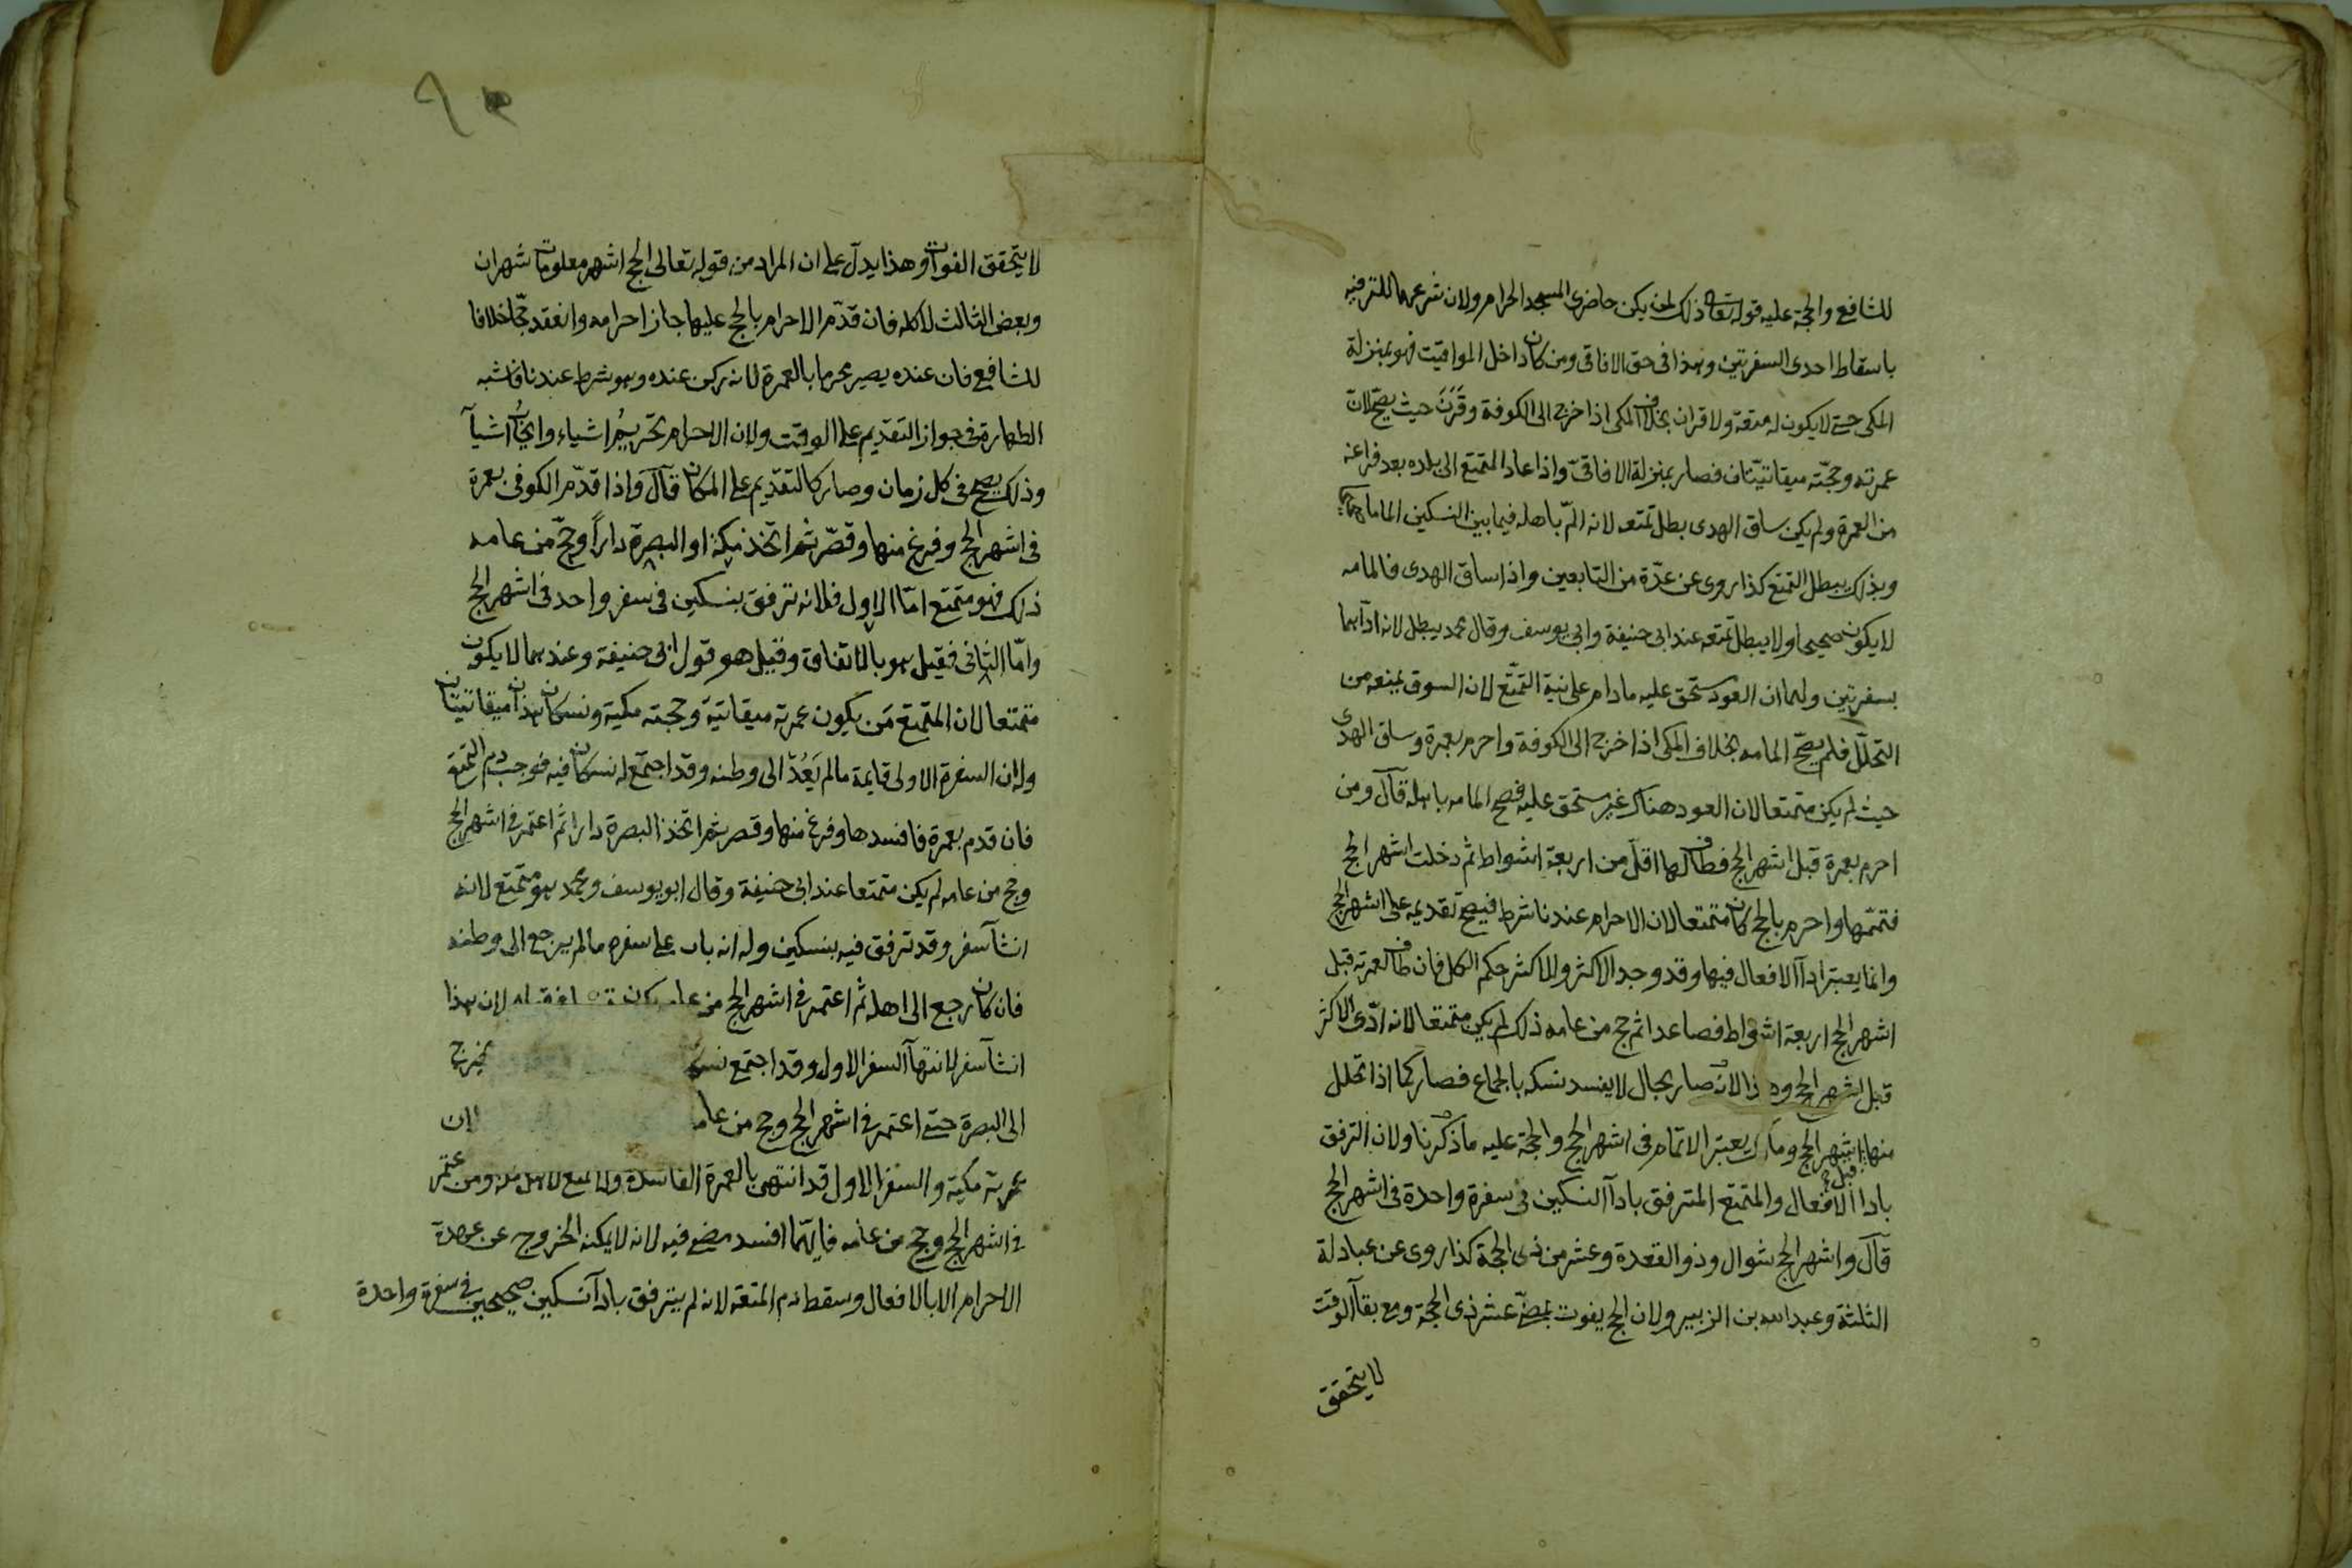 للشافعي والحجة عليه قوله تعالى ذلك لمن لم يكن حاضري المسجد الحرام ولان شرعهما للترفيه
باسقاط احدى السفرتين وهذا في حق الافاقي ومن كان داخل المواقيت فهو بمنزلة
المكي حتى لا يكون له متعة ولا قران بخلاف المكي اذا خرج الى الكوفة وقَرَنَ حيث يصح لان
عمرته وحجته ميقاتيّتان فصار بمنزلة الافاقيّ واذا عاد المتمتع الى بلده بعد فراغه
من العمرة ولم يكن ساق الهدى بطل تمتعه لانه المّ باهله فيما بين النسكين الماما صحيحا
وبذلك يبطل التمتع كذا روى عن عدّة من التابعين واذا ساق الهدى فالمامه
لا يكون صحيحا ولا يبطل تمتعه عند ابى حنيفة وابى يوسف وقال محمد يبطل لانه ادآهما
بسفرتين ولهما ان العود مستحق عليه مادام على نية التمتّع لان السوق يمنعه من
التحلّل فلم يصحّ المامه بخلاف المكى اذا خرج الى الكوفة واحرم بعمرة وساق الهدى
حيث لم يكن متمتعا لان العود هناك غير مستحق عليه فصح المامه باهله قال ومن
احرم بعمرة قبل اشهر الحج فطاف لها اقلّ من اربعة اشواط ثم دخلت اشهر الحج
فتممّها واحرم بالحج كان متمتعا لان الاحرام عندنا شرط فيصح تقديمه على اشهر الحج
وانما يعتبر ادآ الافعال فيها وقد وجد الاكثر وللاكثر حكم الكل فان طاف لعمرته قبل
اشهر الحج اربعة اشواط فصاعدا ثم حج من عامه ذلك لم يكن متمتعا لانه ادّى الاكثر
قبل اشهر الحج وهذا لانه صار بحال لا يفسد نسكه بالجماع فصار كما اذا تحلل
منها قبل اشهر الحج ومالك يعتبر الاتمام فى اشهر الحج والحجة عليه ما ذكرنا ولان الترفق
بادا الافعال والمتمتع المترفق بادآ النسكين فى سفرة واحدة فى اشهر الحج
قال واشهر الحج شوال وذو القعدة وعشر من ذى الحجة كذا روى عن عبادلة
الثلثة وعبد الله بن الزبير ولان الحج يفوت بمضىّ عشر ذى الحجة ومع بقآ الوقت
لا يتحقق
لا يتحقق الفوات وهذا يدلّ على ان المراد من قوله تعالى الحج اشهر معلومات شهران
وبعض الثالث لا كله فان قدّم الاحرام بالحج عليها جاز احرامه وانعقد حجّا خلافا
للشافعي فان عنده يصير محرما بالعمرة لانه ركن عنده وهو شرط عندنا فاشبه
الطهارة فى جواز التقديم على الوقت ولان الاحرام تحريمُ اشياء وايجابُ اشيآ
وذلك يصح فى كل زمان وصار كالتقديم على المكان قال واذا قدّم الكوفى بعمرة
فى اشهر الحج وفرغ منها وقصّر ثم اتخذ مكة او البصرة داراً وحجّ من عامه
ذلك فهو متمتع امّا الاول فلانه ترفق بنسكين فى سفر واحد فى اشهر الحج
وامّا الثانى فقيل هو بالاتفاق وقيل هو قول ابى حنيفة وعندهما لا يكون
متمتعا لان المتمتع مَن يكون عمرته ميقاتية وحجته مكية ونسكان هذان ميقاتيتان
وله ان السفرة الاولى قايمة مالم يَعُدْ الى وطنه وقد اجتمع له نسكان فيه فوجب دم التمتع
فان قدم بعمرة فافسدها وفرغ منها وقصر ثم اتخذ البصرة دارا ثم اعتمر فى اشهر الحج
وحج من عامه لم يكن متمتعا عند ابى حنيفة وقال ابو يوسف ومحمد هو متمتع لانه
انشآ سفر وقد ترفق فيه بنسكين وله انه باب على سفره مالم يرجع الى وطنه
فان كان رجع الى اهله ثم اعتمر فى اشهر الحج من عامه يكون لان هذا
انشآ سفر لانتهآ السفر الاول وقد اجتمع يخرج
الى البصرة حتى اعتمر فى اشهر الحج وحج من لان
عمرته مكية والسفر الاول قد انتهى بالعمرة الفاسدة ولا تمتع لاهل مكة ومن اعتمر
فى اشهر الحج وحج من عامه فايّهما افسد مضى فيه لانه لا يمكنه الخروج عن عهدة
الاحرام الا بالافعال وسقط دم المتعة لانه لم يترفق بادآ نسكين صحيحين فى سفرة واحدة